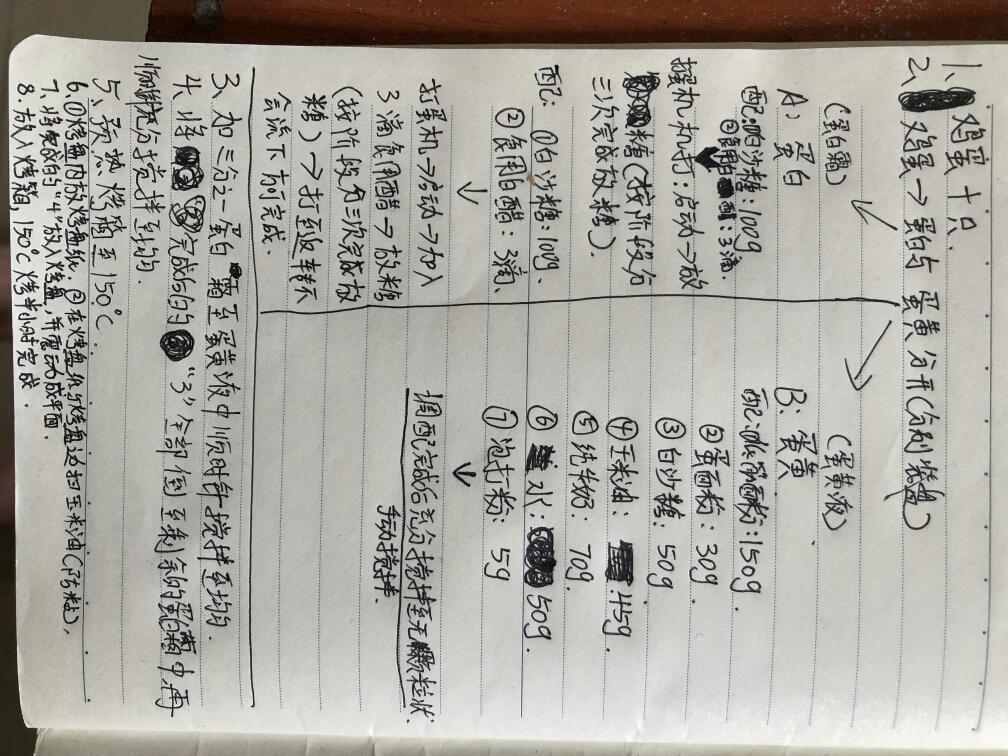 1. 鸡蛋十只.
2. 鸡蛋→蛋白与蛋黄分开(分别装盘)
(蛋白霜)
A: 蛋白
配:①白沙糖:100g
②食用白醋:3滴.
打蛋机打:启动→放
糖(按阶段分
三次完成放糖)
配: ①白沙糖:100g、
②食用白醋:3滴、
↓
打蛋机→启动→加入
3滴食用醋→放糖
(按阶段分三次完成放
糖)→打至反转不
会流下方完成.
(蛋黄液)
B: 蛋黄
配:①低筋面粉:150g.
②蛋面粉:30g.
③白沙糖: 50g
④玉米油: 45g.
⑤纯牛奶: 70g.
⑥水: 50g.
⑦泡打粉: 5g
↓
调配完成后充分搅拌至无颗粒状.
手动搅拌.
3、加三分之一蛋白霜至蛋黄液中顺时针搅拌至均匀.
4. 将完成后的"3"全部倒至剩余的蛋白霜中,再
顺时针充分搅拌至均匀.
5、预热烤箱至150℃.
6.①烤盘内放烤盘纸.②在烤盘纸与烤盘边扫玉米油(防粘).
7.将完成的"4"放入烤盘,并震动成平面.
8.放入烤箱,150℃烤半小时完成.